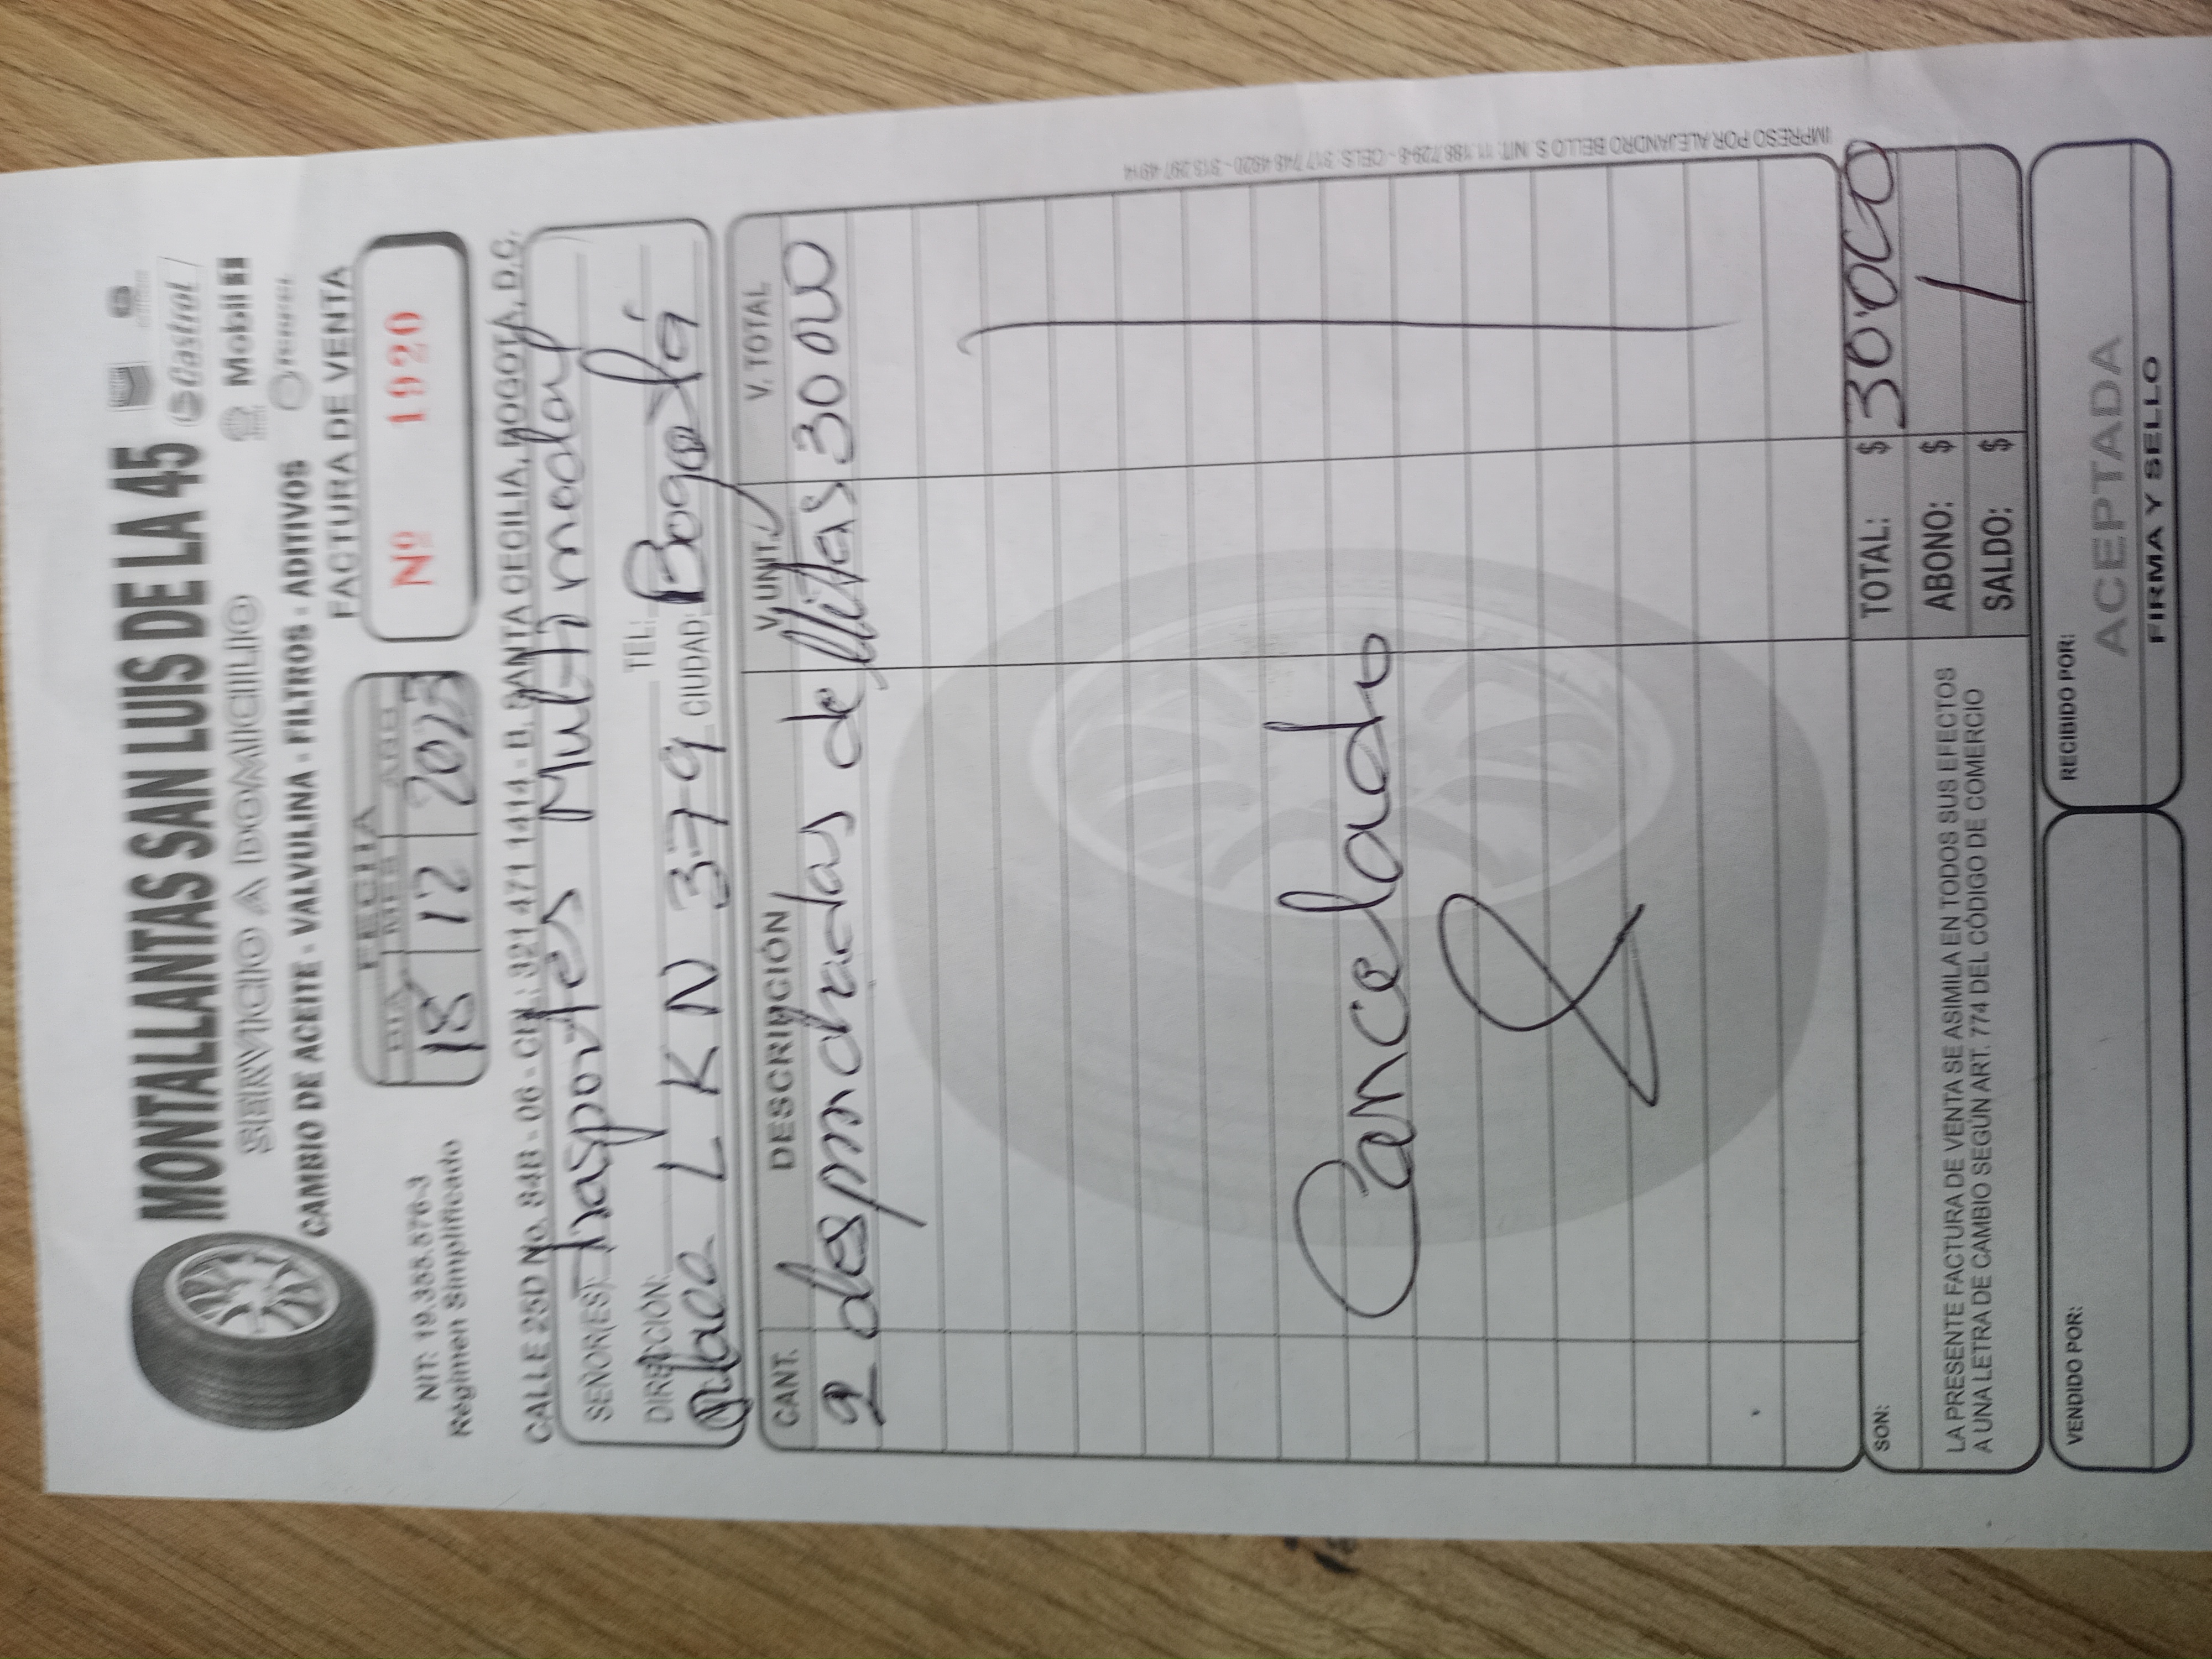 MONTALLANTAS SAN LUIS DE LA 45
SERVICIO A DOMICILIO
Castrol
Mobil
CAMBIO DE ACEITE - VALVULINA - FILTROS - ADITIVOS
FACTURA DE VENTA
NIT: 19.355.576-3
Régimen Simplificado
FECHA
DIA MES AÑO
18 12 2023
Nº 1920
CALLE 25D No. 84B - 06 - CEL.: 321 471 1414 - B. SANTA CECILIA, BOGOTA, D.C.
SEÑOR(ES): Trasportes Multimodal
DIRECCIÓN: TEL.:
Placa LKN 379 CIUDAD: Bogotá
CANT. DESCRIPCIÓN V. UNIT. V. TOTAL
2 despinchadas de llitas 30000
Cancelado
SON:
TOTAL: $ 30.000
ABONO: $
SALDO: $
LA PRESENTE FACTURA DE VENTA SE ASIMILA EN TODOS SUS EFECTOS
A UNA LETRA DE CAMBIO SEGÚN ART. 774 DEL CÓDIGO DE COMERCIO
VENDIDO POR:
RECIBIDO POR:
ACEPTADA
FIRMA Y SELLO
IMPRESO POR ALEJANDRO BELLO S. NIT: 11.188.729-8 - CELS: 317 748 4920 - 313 297 4914